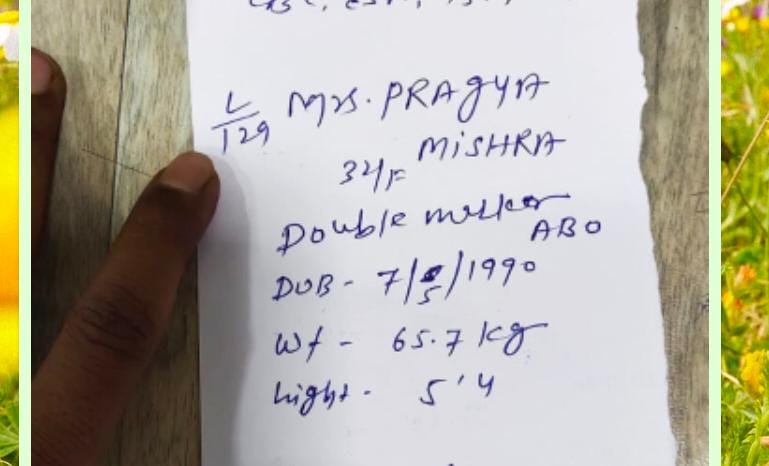 L/129 Mrs. PRAGYA
MISHRA
34/F
Double marker
ABO
DOB - 7/5/1990
Wt - 65.7 kg
hight - 5'4